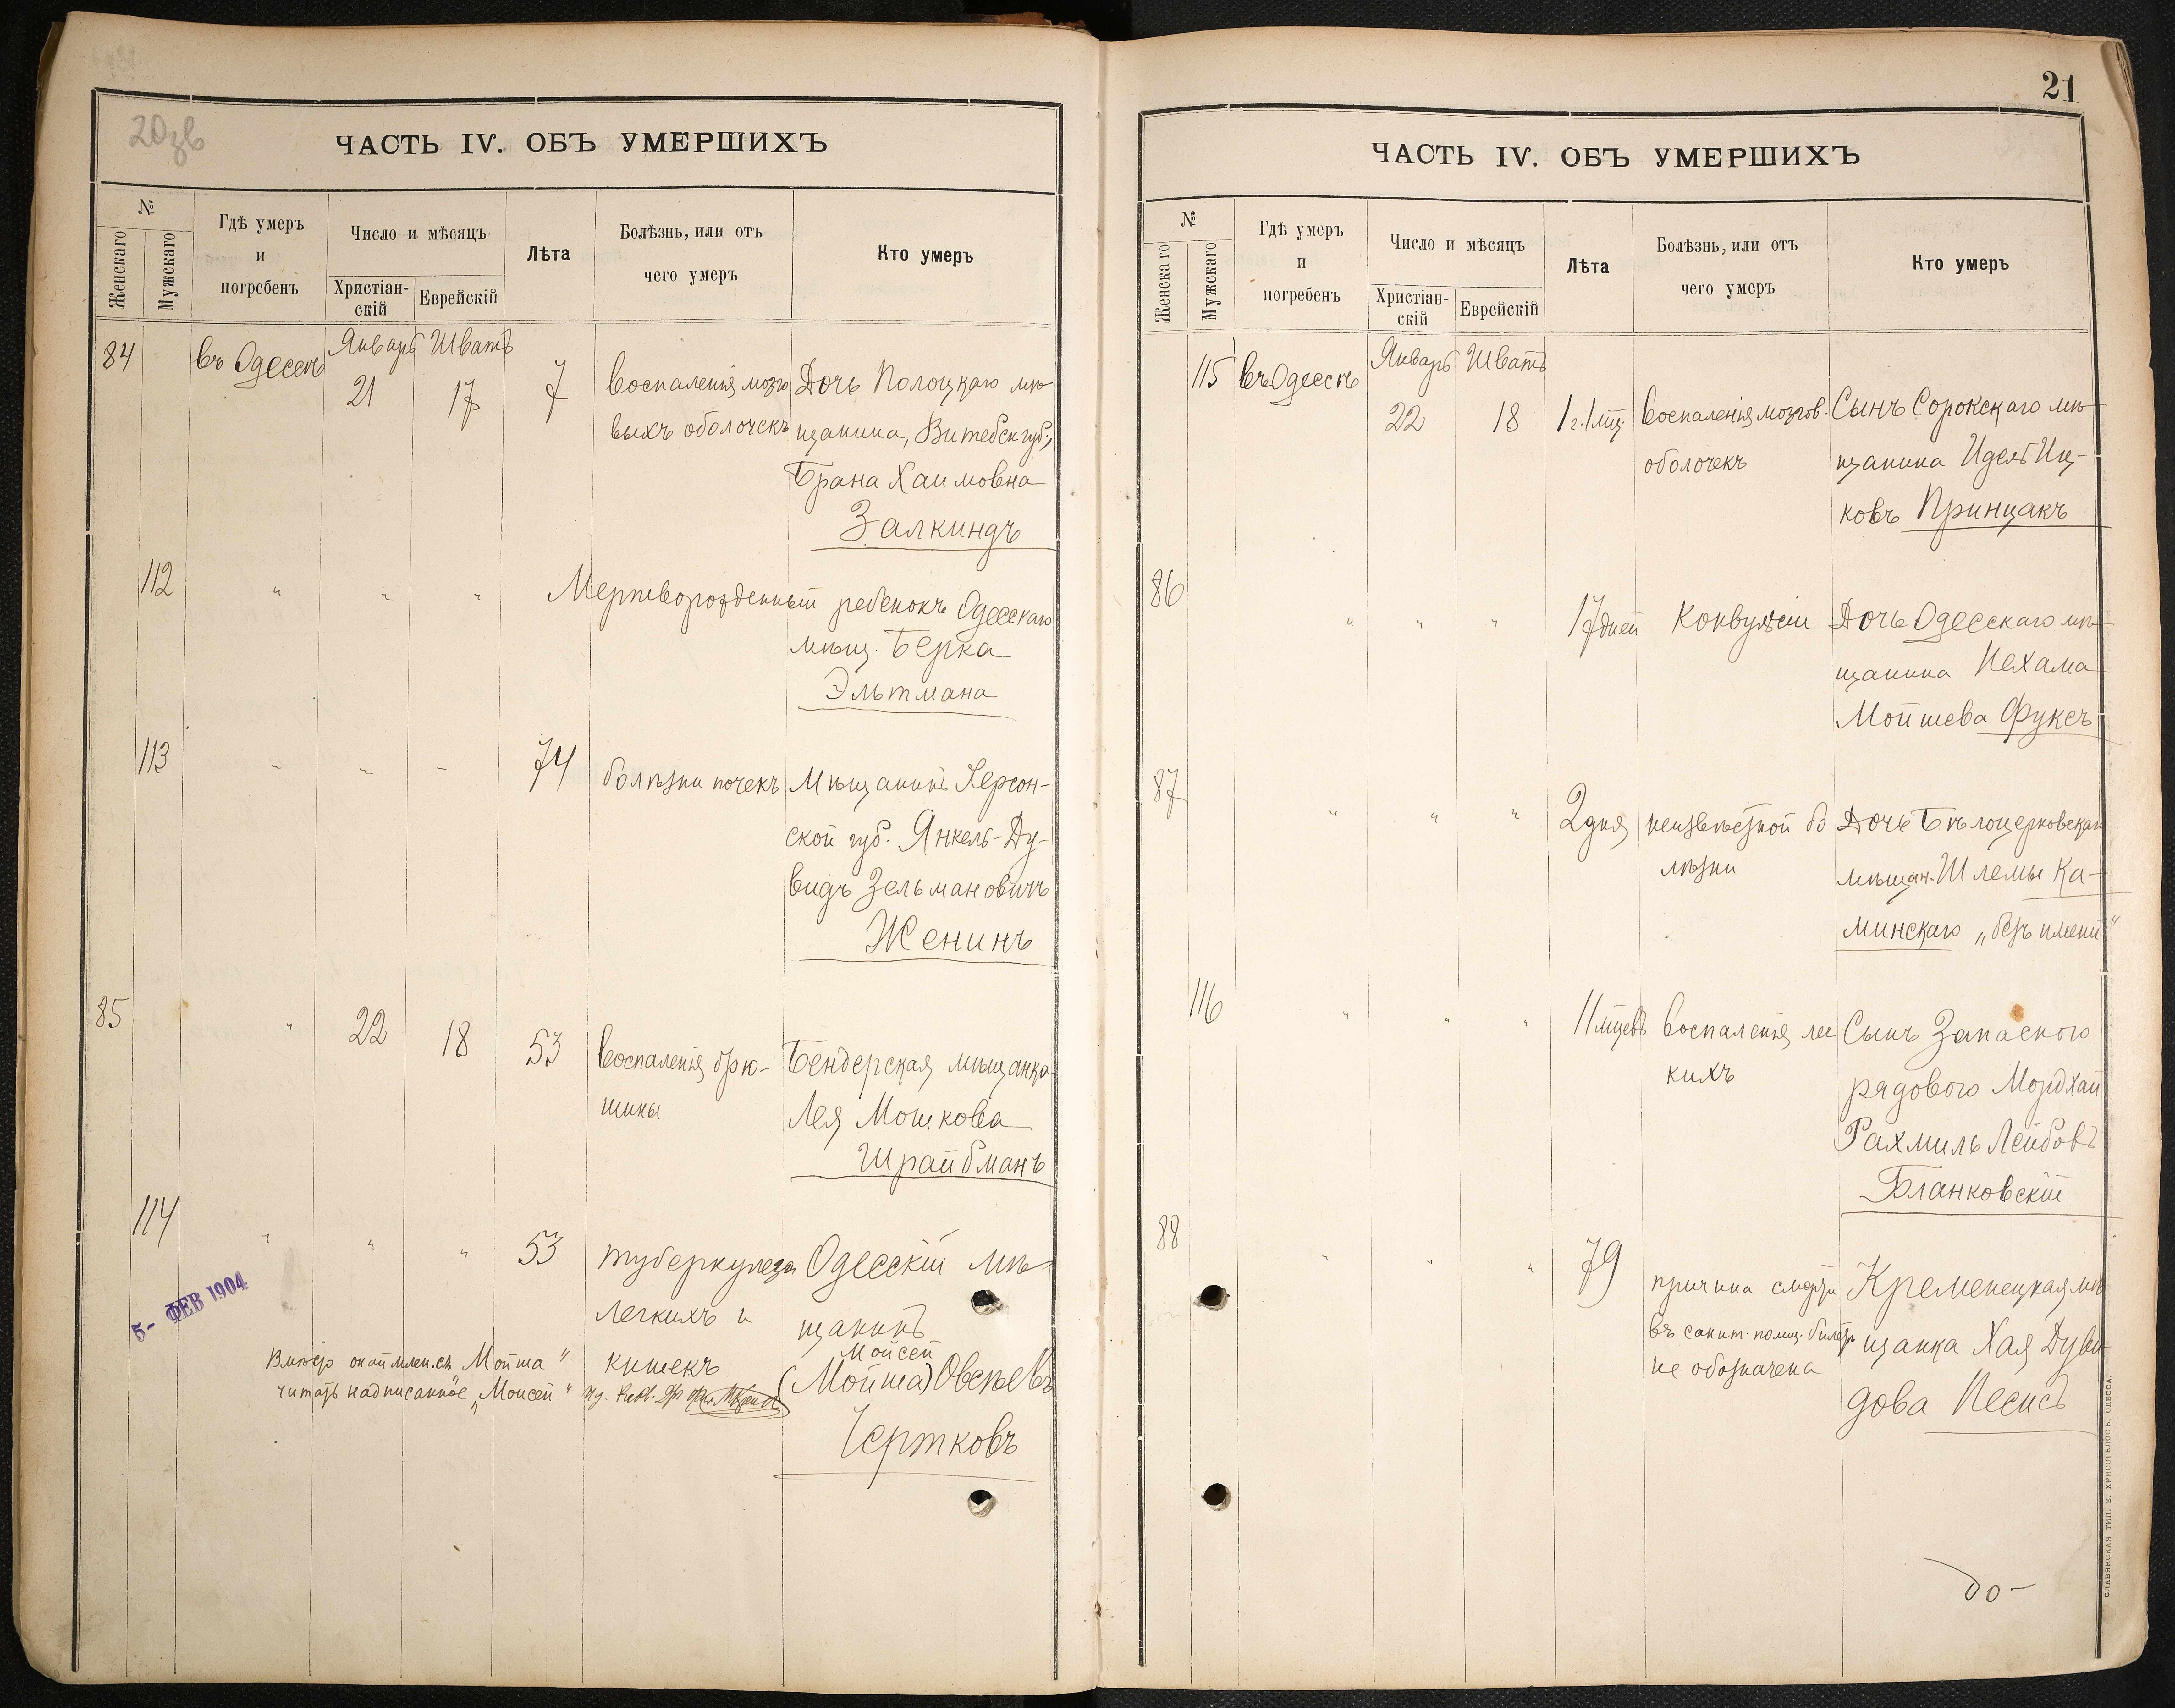 20зв
ЧАСТЬ IV. ОБЪ УМЕРШИХЪ
№
Женскаго
Мужскаго
Гдѣ умеръ
и
погребенъ
Число и мѣсяцъ
Христіан-
скій
Еврейскій
Лѣта
Болѣзнь, или отъ
чего умеръ
Кто умеръ
84 въ Одессѣ Январь Шватъ
21 17 7 воспаленія мозго Дочь Полоцкаго мѣ
выхъ оболочекъ щанина, Витебск губ.,
Брана Хаимовна
Залкиндъ
112 " " " Мертворожденный ребенокъ Одесскаго
мѣщ. Берка
Эльтмана
113 " " " 74 болѣзни почекъ Мѣщанинъ Херсон-
ской губ. Янкель-Ду-
видъ Зельмановичъ
Женинъ
85 " 22 18 53 воспаленія брю- Бендерская мѣщанка
шины Лея Мошкова
Шрайбманъ
114 " " " 53 туберкулеза Одесскій мѣ
легкихъ и щанинъ
5- ФЕВ 1904
Мойсей
кишекъ (Мойша) Овсѣевъ
Вмѣсто Мойша"
читать надписанное „Моисей"
Чертковъ
21
ЧАСТЬ IV. ОБЪ УМЕРШИХЪ
№
Женскаго
Мужскаго
Гдѣ умеръ
и
погребенъ
Число и мѣсяцъ
Христіан-
скій
Еврейскій
Лѣта
Болѣзнь, или отъ
чего умеръ
Кто умеръ
115 въ Одессѣ Январь Шватъ
22 18 1 г. 1 мц. воспаленія мозгов. Сынъ Сорокскаго мѣ
оболочекъ щанина Идель Иц-
ковъ Принцакъ
86 " " " 17 дней Конвульсіи Дочь Одесскаго мѣ
щанина Нехама
Мойшева Фуксъ
87 " " " 2 дня неизвѣстной бо Дочь Бѣлоцерковскаго
лѣзни мѣщан. Шлемы Ка-
минскаго „безъ имени"
116 " " " 11 мцевъ воспаленія лег Сынъ Запаснаго
кихъ рядового Мордхай
Рахмиль Лейбовъ
Бланковскій
88 " " " 79 причина смерти Кременецкая мѣ
въ санит. полиц. билетѣ щанка Хая Дуви
не обозначена дова Песисъ
до-
СЛАВЯНСКАЯ ТИП. Е. ХРИСОГЕЛОСЪ, ОДЕССА.